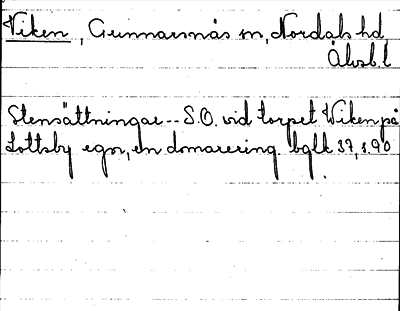 Viken, Gunnarsnäs sn, Nordals hd
Älvsb. l
Stensättningar -- S.O. vid torpet Wiken på
Lottsby egor, en domarering bglk 37, s. 90